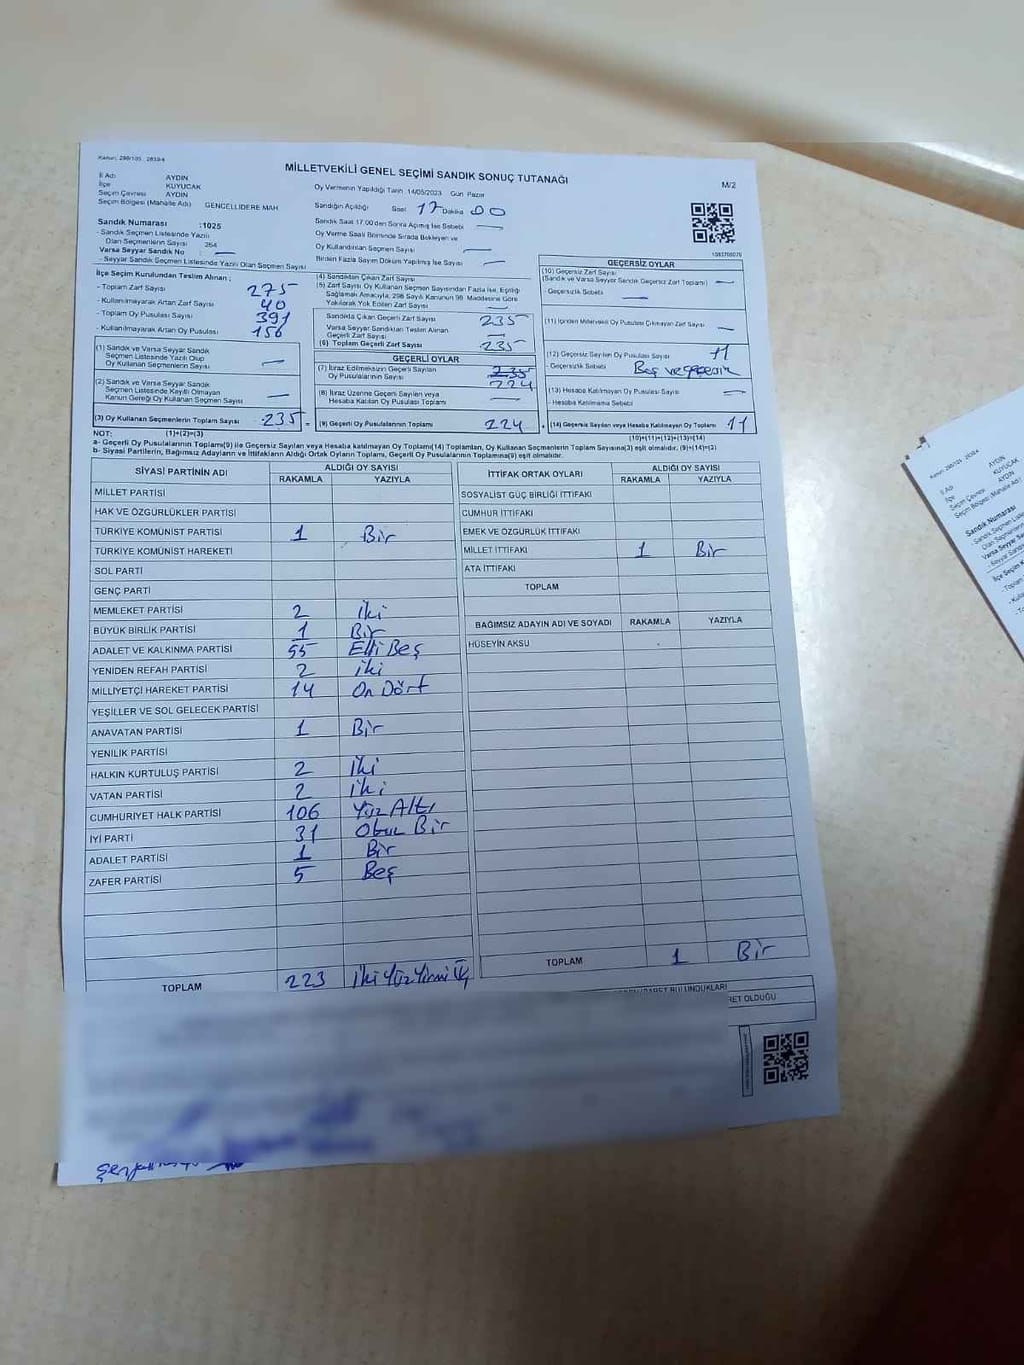 Kanun: 298/105 , 2839/4
MİLLETVEKİLİ GENEL SEÇİMİ SANDIK SONUÇ TUTANAĞI
M/2
İl Adı AYDIN
İlçe KUYUCAK
Seçim Çevresi AYDIN
Seçim Bölgesi (Mahalle Adı) GENCELLİDERE MAH
Oy Vermenin Yapıldığı Tarih 14/05/2023 Gün Pazar
Sandığın Açıldığı Saat 17 Dakika 00
Sandık Saat 17:00'den Sonra Açılmış İse Sebebi
Oy Verme Saati Bitiminde Sırada Bekleyen ve
Oy Kullandırılan Seçmen Sayısı
Birden Fazla Sayım Döküm Yapılmış İse Sayısı
Sandık Numarası :1025
- Sandık Seçmen Listesinde Yazılı
Olan Seçmenlerin Sayısı 264
Varsa Seyyar Sandık No :
- Seyyar Sandık Seçmen Listesinde Yazılı Olan Seçmen Sayısı
İlçe Seçim Kurulundan Teslim Alınan ;
- Toplam Zarf Sayısı 275
- Kullanılmayarak Artan Zarf Sayısı 40
- Toplam Oy Pusulası Sayısı 391
- Kullanılmayarak Artan Oy Pusulası 156
(1) Sandık ve Varsa Seyyar Sandık
Seçmen Listesinde Yazılı Olup
Oy Kullanan Seçmenlerin Sayısı
(2) Sandık ve Varsa Seyyar Sandık
Seçmen Listesinde Kayıtlı Olmayan
Kanun Gereği Oy Kullanan Seçmen Sayısı
(3) Oy Kullanan Seçmenlerin Toplam Sayısı 235
(4) Sandıktan Çıkan Zarf Sayısı
(5) Zarf Sayısı Oy Kullanan Seçmen Sayısından Fazla İse, Eşitliği
Sağlamak Amacıyla, 298 Sayılı Kanunun 98. Maddesine Göre
Yakılarak Yok Edilen Zarf Sayısı
Sandıkta Çıkan Geçerli Zarf Sayısı 235
Varsa Seyyar Sandıktan Teslim Alınan
Geçerli Zarf Sayısı
(6) Toplam Geçerli Zarf Sayısı 235
GEÇERLİ OYLAR
(7) İtiraz Edilmeksizin Geçerli Sayılan
Oy Pusulalarının Sayısı 235 224
(8) İtiraz Üzerine Geçerli Sayılan veya
Hesaba Katılan Oy Pusulası Toplamı
(9) Geçerli Oy Pusulalarının Toplamı 224
GEÇERSİZ OYLAR
(10) Geçersiz Zarf Sayısı
(Sandık ve Varsa Seyyar Sandık Geçersiz Zarf Toplamı)
- Geçersizlik Sebebi
(11) İçinden Milletvekili Oy Pusulası Çıkmayan Zarf Sayısı
(12) Geçersiz Sayılan Oy Pusulası Sayısı 11
- Geçersizlik Sebebi Boş ve geçersiz
(13) Hesaba Katılmayan Oy Pusulası Sayısı
- Hesaba Katılmama Sebebi
(14) Geçersiz Sayılan veya Hesaba Katılmayan Oy Toplamı 11
NOT: (1)+(2)=(3) (10)+(11)+(12)+(13)=(14)
a- Geçerli Oy Pusulalarının Toplamı(9) ile Geçersiz Sayılan veya Hesaba katılmayan Oy Toplamı(14) Toplamları, Oy Kullanan Seçmenlerin Toplam Sayısına(3) eşit olmalıdır. (9)+(14)=(3)
b- Siyasi Partilerin, Bağımsız Adayların ve İttifakların Aldığı Ortak Oyların Toplamı, Geçerli Oy Pusulalarının Toplamına(9) eşit olmalıdır.
SİYASİ PARTİNİN ADI ALDIĞI OY SAYISI
RAKAMLA YAZIYLA
MİLLET PARTİSİ
HAK VE ÖZGÜRLÜKLER PARTİSİ
TÜRKİYE KOMÜNİST PARTİSİ 1 Bir
TÜRKİYE KOMÜNİST HAREKETİ
SOL PARTİ
GENÇ PARTİ
MEMLEKET PARTİSİ 2 İki
BÜYÜK BİRLİK PARTİSİ 1 Bir
ADALET VE KALKINMA PARTİSİ 55 Elli Beş
YENİDEN REFAH PARTİSİ 2 iki
MİLLİYETÇİ HAREKET PARTİSİ 14 On Dört
YEŞİLLER VE SOL GELECEK PARTİSİ
ANAVATAN PARTİSİ 1 Bir
YENİLİK PARTİSİ
HALKIN KURTULUŞ PARTİSİ 2 İki
VATAN PARTİSİ 2 İki
CUMHURİYET HALK PARTİSİ 106 Yüz Altı
İYİ PARTİ 31 Otuz Bir
ADALET PARTİSİ 1 Bir
ZAFER PARTİSİ 5 Beş
TOPLAM 223 İki Yüz Yirmi Üç
İTTİFAK ORTAK OYLARI ALDIĞI OY SAYISI
RAKAMLA YAZIYLA
SOSYALİST GÜÇ BİRLİĞİ İTTİFAKI
CUMHUR İTTİFAKI
EMEK VE ÖZGÜRLÜK İTTİFAKI
MİLLET İTTİFAKI 1 Bir
ATA İTTİFAKI
TOPLAM
BAĞIMSIZ ADAYIN ADI VE SOYADI RAKAMLA YAZIYLA
HÜSEYİN AKSU
TOPLAM 1 Bir
BULUNDUKLARI
RET OLDUĞU
Kanun: 298/105 , 2839/4
İl Adı AYDIN
İlçe KUYUCAK
Seçim Çevresi AYDIN
Seçim Bölgesi (Mahalle Adı)
Sandık Numarası